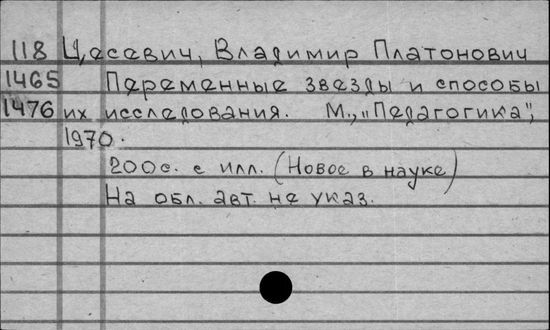 118 Цесевич, Владимир Платонович
1465 Переменные звезды и способы
1476 их исследования. М., "Педагогика",
1970.
200с. с илл. (Новое в науке)
На обл. авт. не указ.